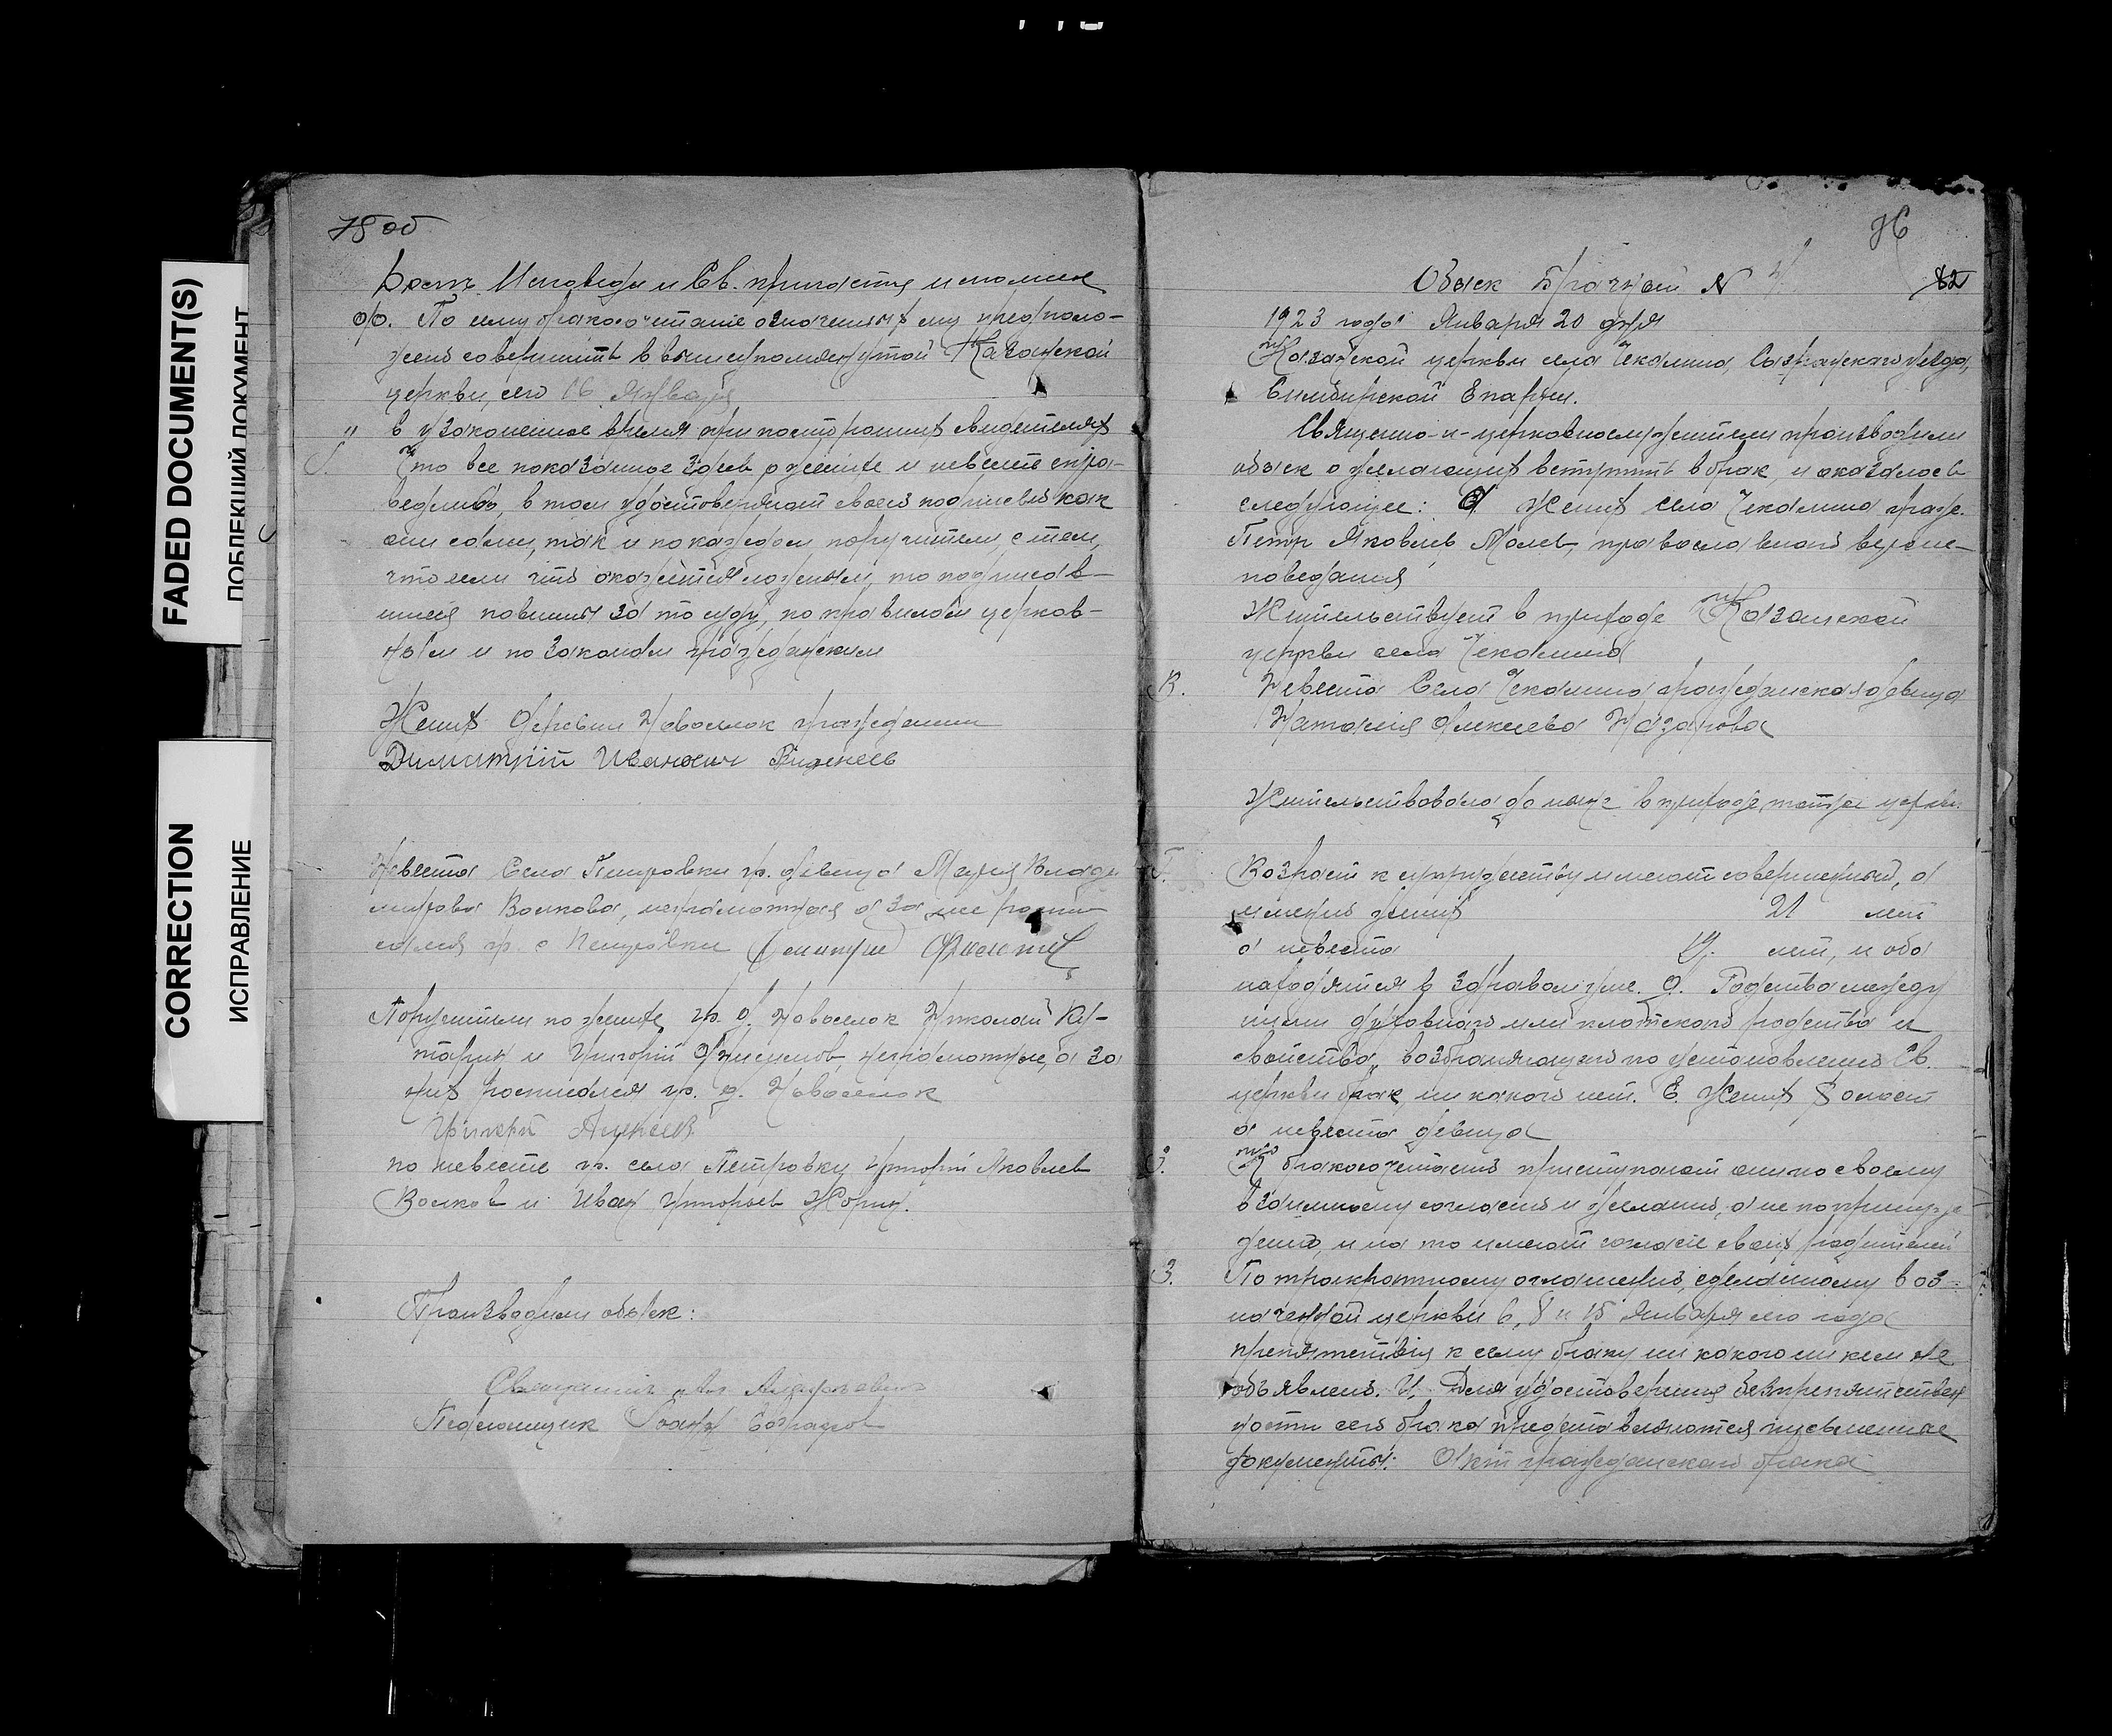 FADED DOCUMENT(S)
ПОБЛЕКШИЙ ДОКУМЕНТ
CORRECTION
ИСПРАВЛЕНИЕ
75 об
Долг Исповеди и Св. причастия исполнен
По сему бракосочетание означенных лиц предполо-
жено совершить в вышеупомянутой Казанской
церкви, сего 16 Января
в узаконенное время при посторонних свидетелях
Что все показанное здесь о женихе и невесте спра-
ведливо, в том удостоверяют своею подписью как
они сами, так и по каждом поручители, с тем,
что если что окажется ложным, то подписав-
шиеся повинны за то суду, по правилам церков-
ным и по законам гражданским
Жених деревни Новоселок гражданин
Димитрий Иванович
Невеста Села Петровки гр. девица Мария Влади
мирова Волкова, неграмотная а за нее
гр. с Петровки
Поручители по женихе, гр. д. Новоселок Николай
и Григорий неграмотные, а за
них росписался гр. д. Новоселок
Григорий Алексеев
по невесте гр. села Петровки Григорий Яковлев
Волков и Иван Григорьев Жорин.
Производили обыск:
Священник
Псаломщик
76
82
Обыск Брачный №
1923 года Января 20 дня
Казанской церкви села Чекалина, Сызранского уезда,
Симбирской Епархии.
Священно-и-церковнослужители производили
обыск о желающих вступить в брак, и оказалось
следующее: Жених села Чекалина граж.
Петр Яковлев Малев, православного вероис-
поведания
Жительствует в приходе Казанской
церкви села Чекалина
В. Невеста Села Чекалина гражданская девица
Наталия Алексеева Назарова
Жительствовала до ныне в приходе тойже церкви.
Г. Возраст к супружеству имеют совершенный, а
именно жених 21 лет
а невеста 19. лет, и оба
находятся в здравом уме. Д. Родства между
ними духовного или плотского родства и
свойства, возбраняющего по установлению Св.
церкви брак, никакого нет. Е. Жених холост
а невеста девица
К бракосочетанию приступают они по своему
взаимному согласию и желанию, а не по принуж
дению, и на то имеют согласие своих родителей
З. По троекратному оглашению, сделанному в оз-
наченной церкви 6, 8 и 15 Января сего года
препятствия к сему браку никакого никем не
объявлено. И. Для удостоверения безпрепятствен
ности сего брака представляются письменные
документы: Акт гражданского брака